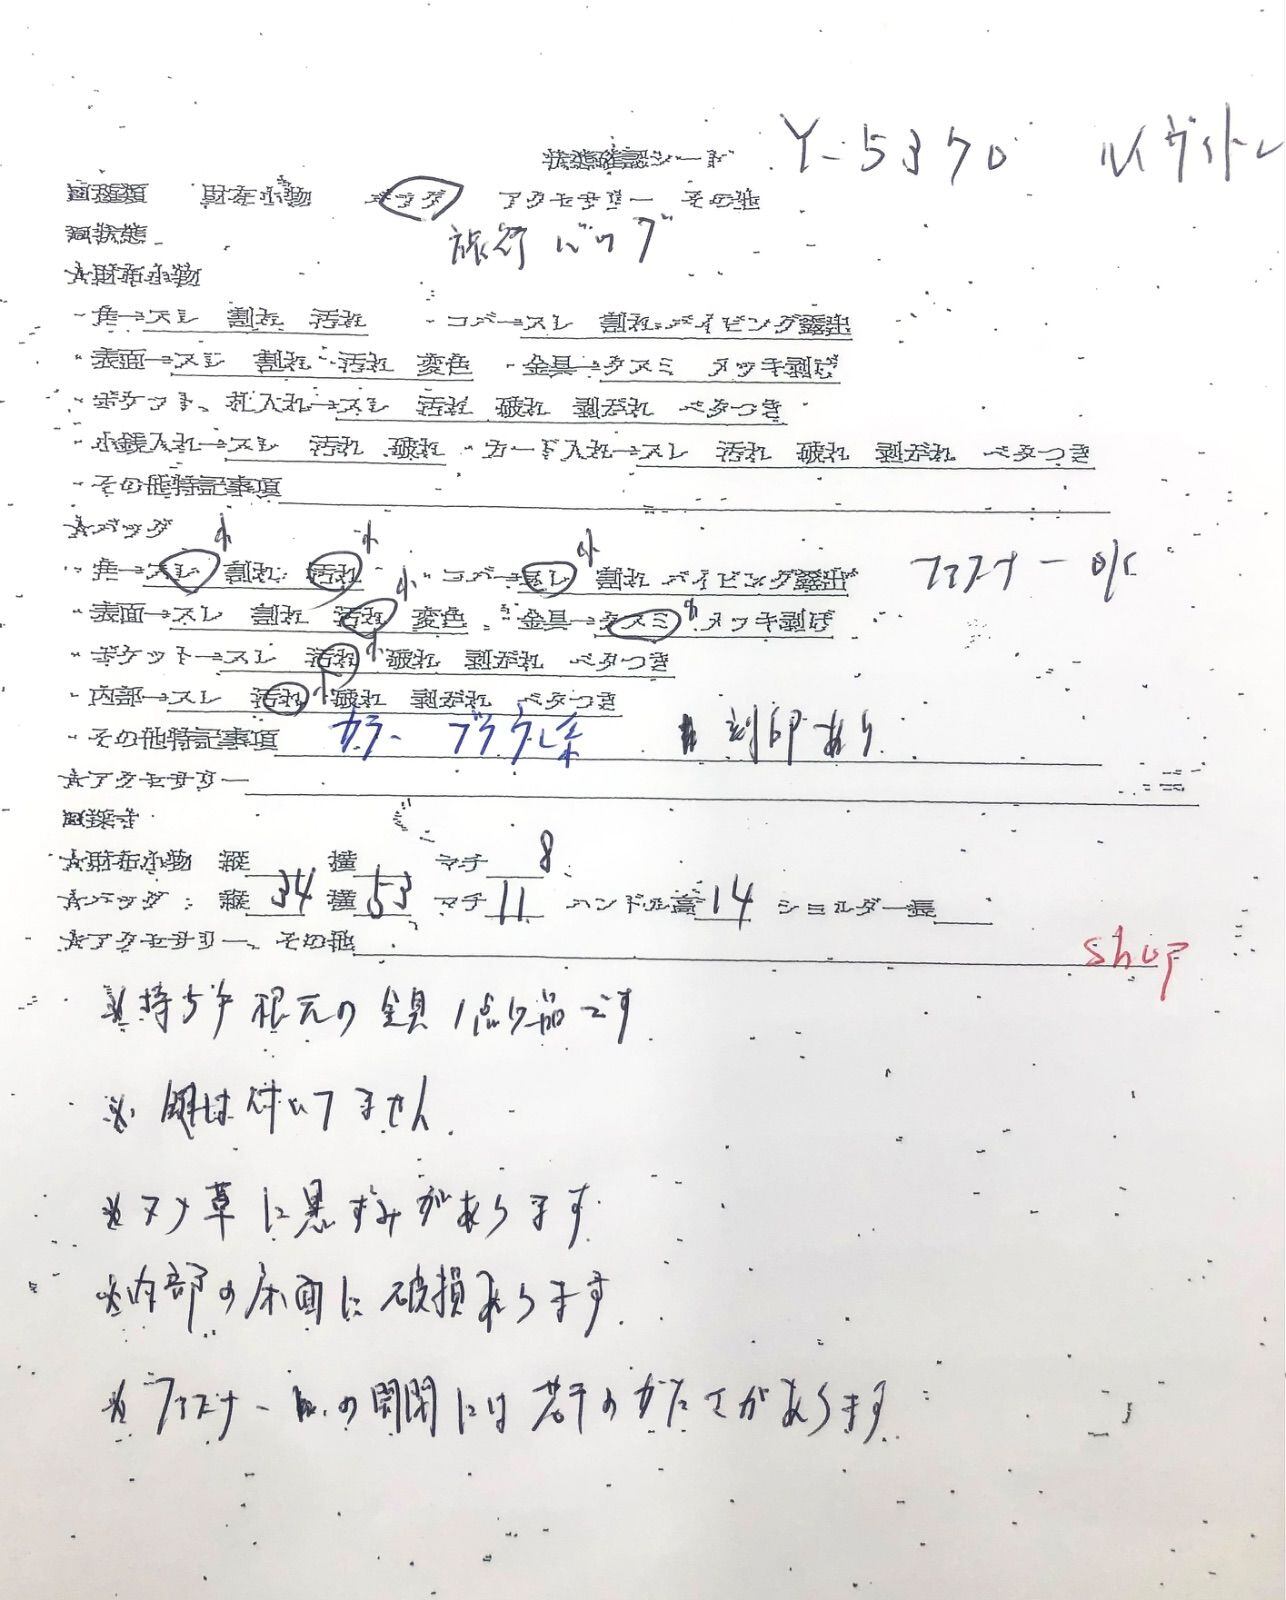 状態確認シート Y-5370 ルイヴィトン
□種類 財布小物 バッグ アクセサリー その他
旅行バッグ
□状態
☆財布小物
・角→スレ 割れ 汚れ ・コバ→スレ 割れ パイピング露出
・表面→スレ 割れ 汚れ 変色 ・金具→クスミ メッキ剥げ
・ポケット、札入れ→スレ 汚れ 破れ 剥がれ ベタつき
・小銭入れ→スレ 汚れ 破れ ・カード入れ→スレ 汚れ 破れ 剥がれ ベタつき
・その他特記事項
☆バッグ
・角→スレ小 割れ 汚れ小 ・コバ→スレ小 割れ パイピング露出 ファスナー OK
・表面→スレ 割れ 汚れ小 変色 ・金具→クスミ小 メッキ剥げ
・ポケット→スレ 汚れ小 破れ 剥がれ ベタつき
・内部→スレ 汚れ小 破れ 剥がれ ベタつき
・その他特記事項 カラー ブラウン系 刻印あり
☆アクセサリー
□採寸
☆財布小物 縦 横 マチ 8
☆バッグ:縦 34 横 53 マチ 11 ハンドル高 14 ショルダー長
☆アクセサリー、その他
shop
※持ち手根元の金具1点欠品です
※鍵は付いてません.
※ヌメ革に黒ずみがあります
※内部の床面に破損あります.
※ファスナーの開閉には若干のかたさがあります.